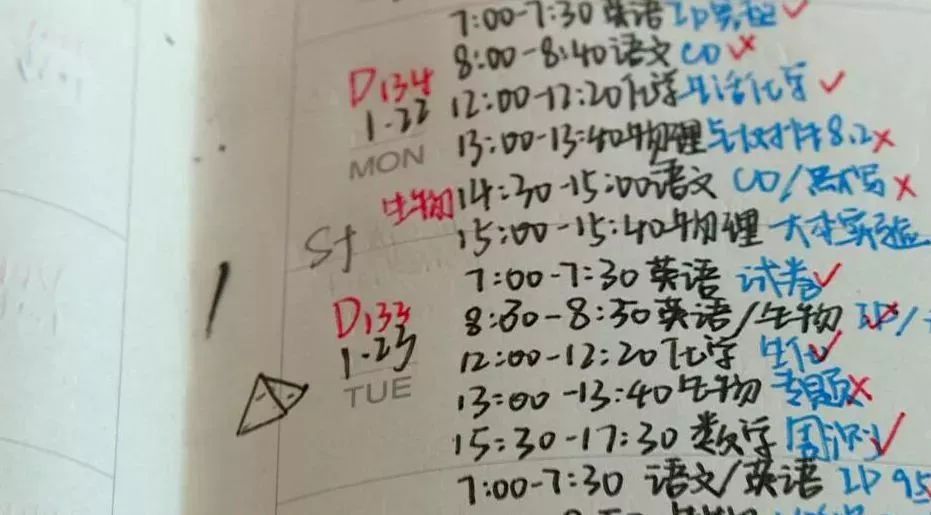 7:00-7:30 英语
8:00-8:40 语文 CO ×
D134 12:00-12:20 化学 生活化学 ✓
1.22
MON 13:00-13:40 物理 8.2 ×
生物 14:30-15:00 语文 CO/ ×
St 15:00-15:40 物理 大本实验
7:00-7:30 英语 试卷 ✓
D133 8:30-8:50 英语/生物
1.23 12:00-12:20 化学 生化 ✓
TUE 13:00-13:40 生物 专题 ×
15:30-17:30 数学 周测 ✓
7:00-7:30 语文/英语 IP 95